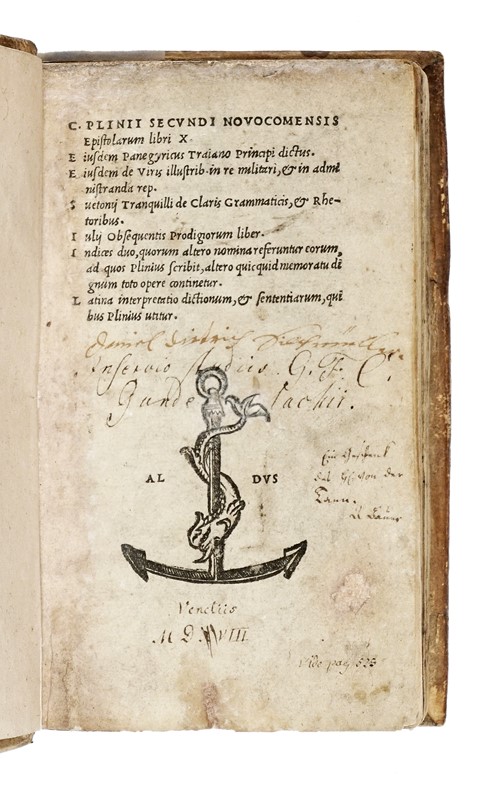 C. PLINII SECVNDI NOVOCOMENSIS
Epistolarum libri X.
E iusdem Panegyricus Traiano Principi dictus.
E iusdem de Viris illustrib. in re militari, & in admi
nistranda rep.
S uetonij Tranquilli de Claris Grammaticis, & Rhe-
toribus.
I ulij Obsequentis Prodigiorum liber.
I ndices duo, quorum altero nomina referuntur eorum,
ad quos Plinius scribit, altero quicquid memoratu di
gnum toto opere continetur.
L atina interpretatio dictionum, & sententiarum, qui
bus Plinius utitur.
Daniel
Inservio studiis G. F. C.
AL DVS
Ein Geschenk
des H. von der
Tann.
Venetiis
M D XVIII
Vide pag. 525